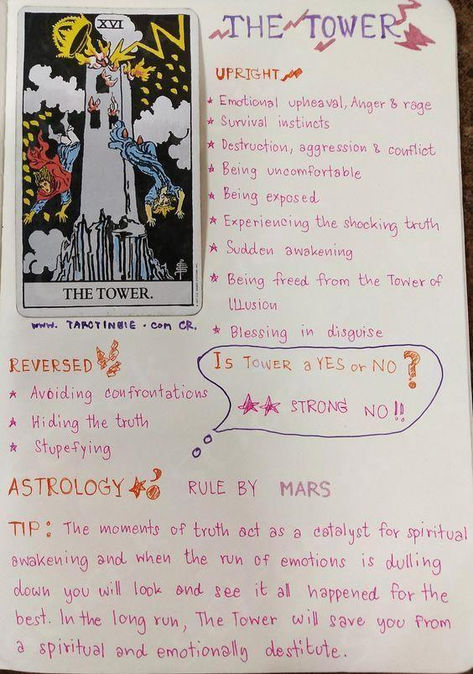 XVI
THE TOWER.
www. TAROTINDIE. com CR.
THE TOWER
UPRIGHT
Emotional upheaval, Anger & rage
Survival instincts
Destruction, aggression & conflict
Being uncomfortable
Being exposed
Experiencing the shocking truth
Sudden awakening
Being freed from the Tower of
Illusion
Blessing in disguise
REVERSED
Avoiding confrontations
Hiding the truth
Stupefying
Is TOWER a YES or NO ?
STRONG NO!!
ASTROLOGY RULE BY MARS
TIP: The moments of truth act as a catalyst for spiritual
awakening and when the run of emotions is dulling
down you will look and see it all happened for the
best. In the long run, The Tower will save you from
a spiritual and emotionally destitute.